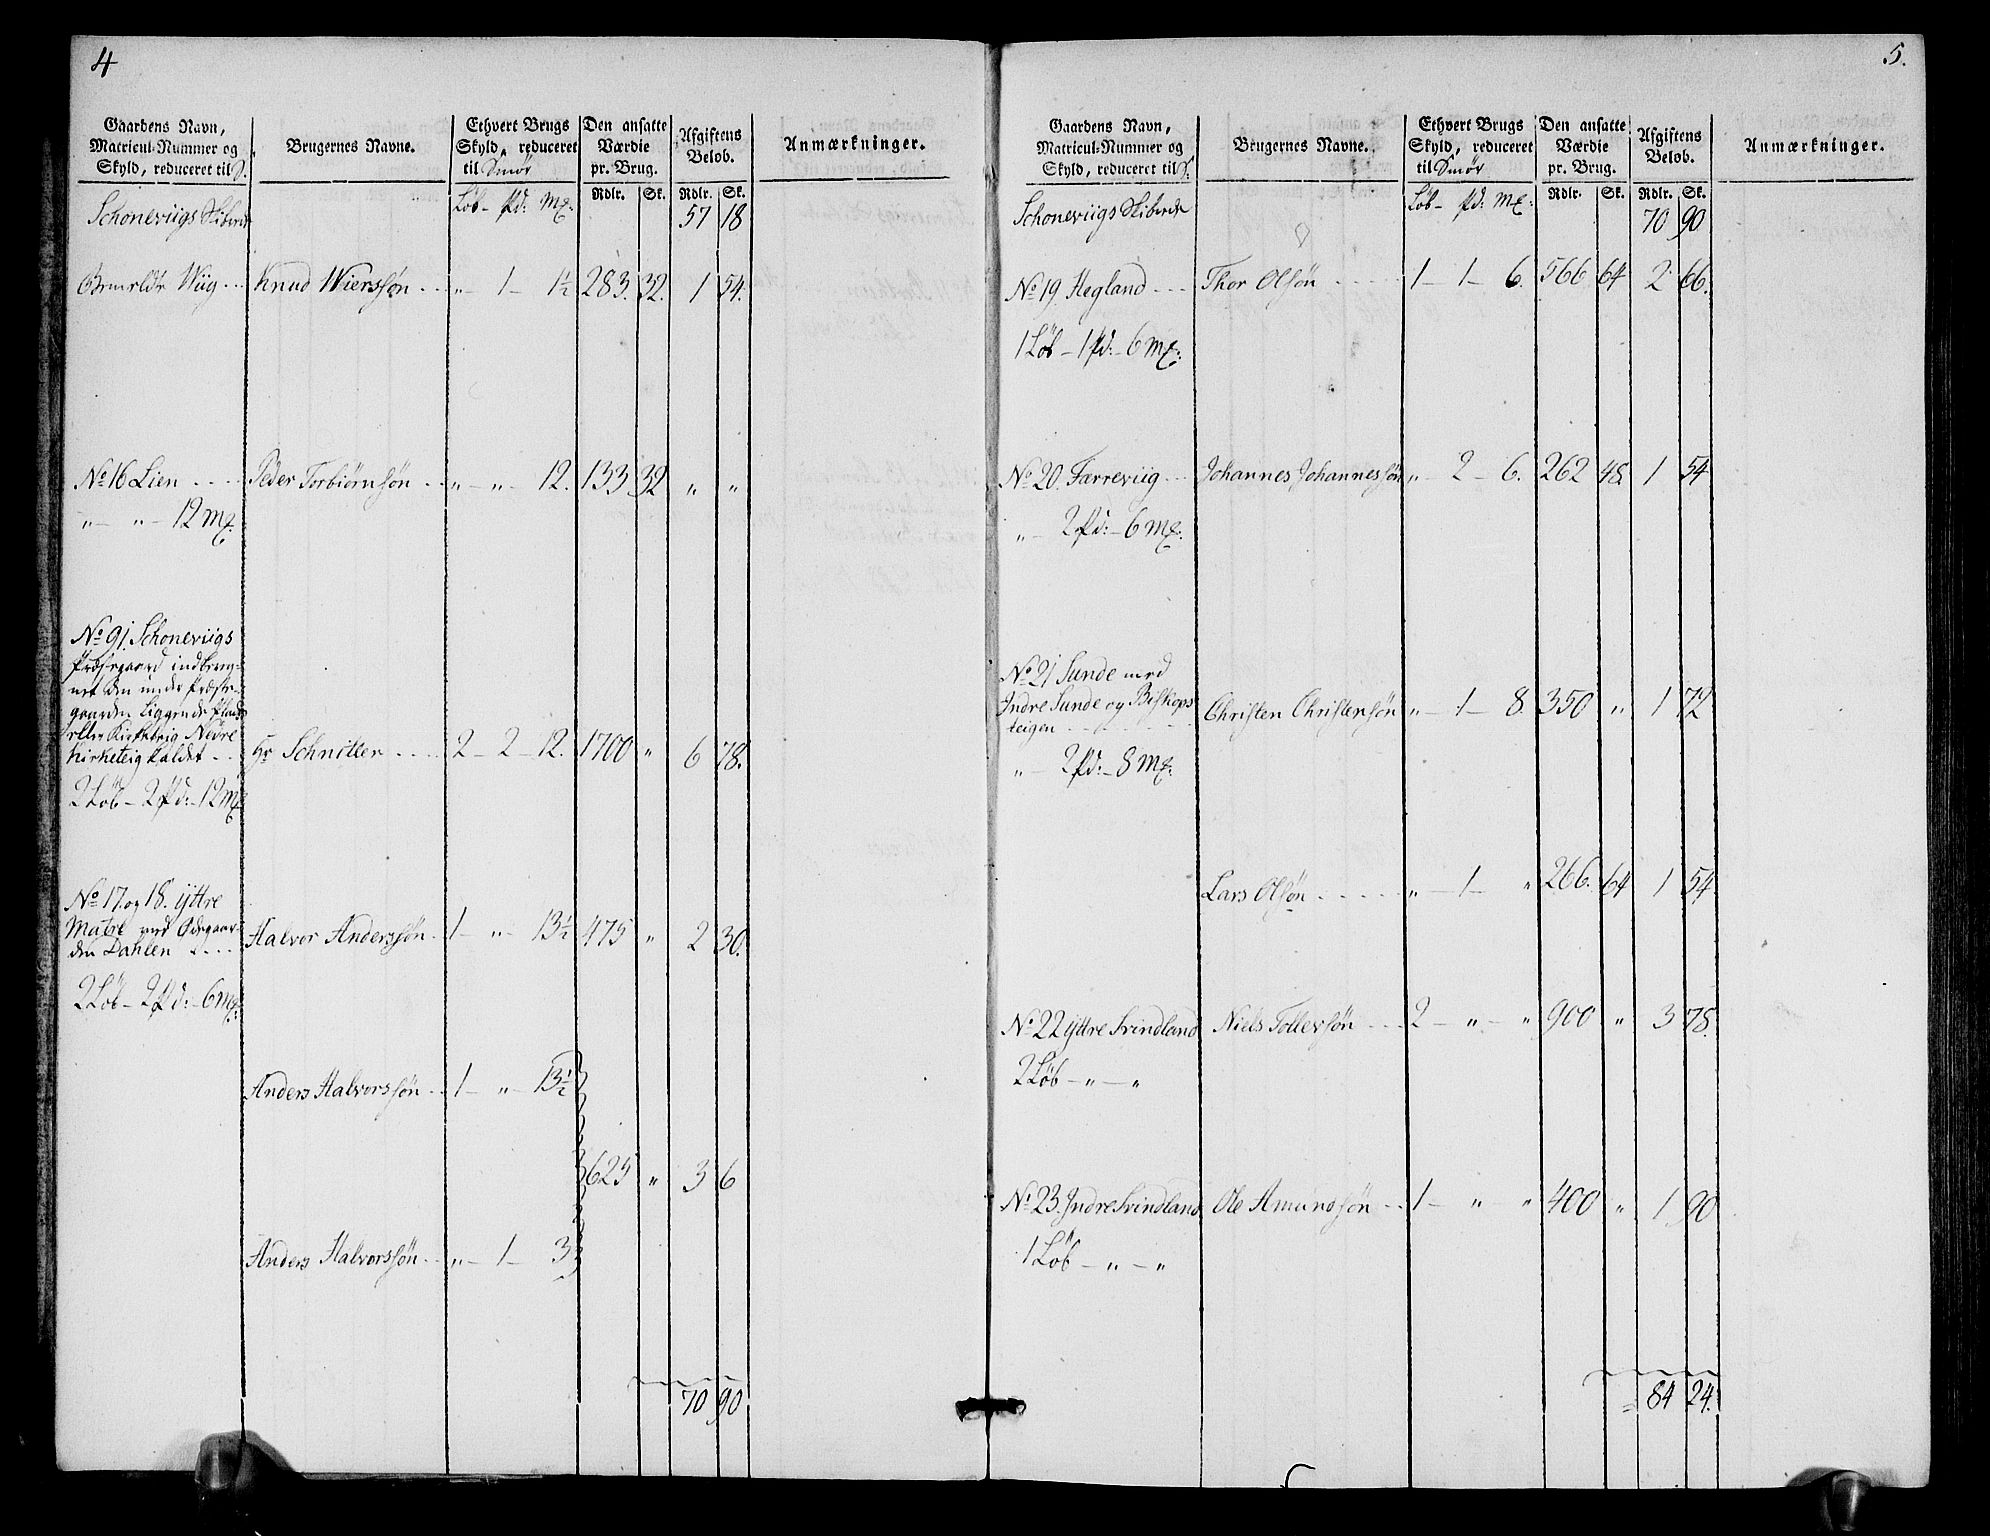 4
Gaardens Navn, Matricul-Nummer og Skyld, reduceret til S.
Brugernes Navne.
Ethvert Brugs Skyld, reduceret til Smör
Den ansatte Værdie pr. Brug.
Afgiftens Belöb.
Anmærkninger.
Löb - Pd: Mk: Rdlr. Sk. Rdlr. Sk.
Schoneviigs Skibrede 57 18
Wiig Knud Wierssön „ - 1 - 1½ 283. 32. 1 54.
No 16 Lien Peder Torbiörnsön „ - „ - 12. 133 32 „ „
„ - „ - 12 Mk:
No 91. Schoneviigs
Præstegaard indbereg-
net den under Præste-
gaarden liggende Plads
eller Nedre
Kirketeig kaldet Hr Schnitler 2 - 2 - 12. 1700 „ 6 78.
2 Löb - 2 Pd: - 12 Mk
No 17. og 18. Yttre
Matre med Ödegaar-
den Dahlen Halvor Anderssön 1 - „ - 13½ 475 „ 2 30.
2 Löb - 2 Pd: - 6 Mk:
Anders Halvorssön 1 - „ - 13½
625 „ 3 6
Anders Halvorssön „ - 1 - 3
70 90
5.
Gaardens Navn, Matricul-Nummer og Skyld, reduceret til S.
Brugernes Navne.
Ethvert Brugs Skyld, reduceret til Smör
Den ansatte Værdie pr. Brug.
Afgiftens Belöb.
Anmærkninger.
Löb - Pd: Mk: Rdlr. Sk. Rdlr. Sk.
Schoneviigs Skibrede 70 90
No 19. Hegland Thor Olsön 1 - 1 - 6. 566 64 2 66.
1 Löb - 1 Pd: - 6 Mk:
No 20. Færreviig Johannes Johannessön „ - 2 - 6. 262 48. 1 54
„ - 2 Pd: - 6 Mk:
No 21 Sunde med
Indre Sunde og Biskops
teigen Christen Christensön „ - 1 - 8. 350 „ 1 72
„ - 2 Pd: - 8 Mk:
Lars Olsön „ - 1 - „ 266. 64 1 54
No 22 Yttre Svindland Niels Tollevsön 2 - „ - „ 900 „ 3 78.
2 Löb - „ - „
No 23. Indre Svindland Ole Amundsön 1 - „ „ 400 „ 1 90
1 Löb - „ - „
84 24.